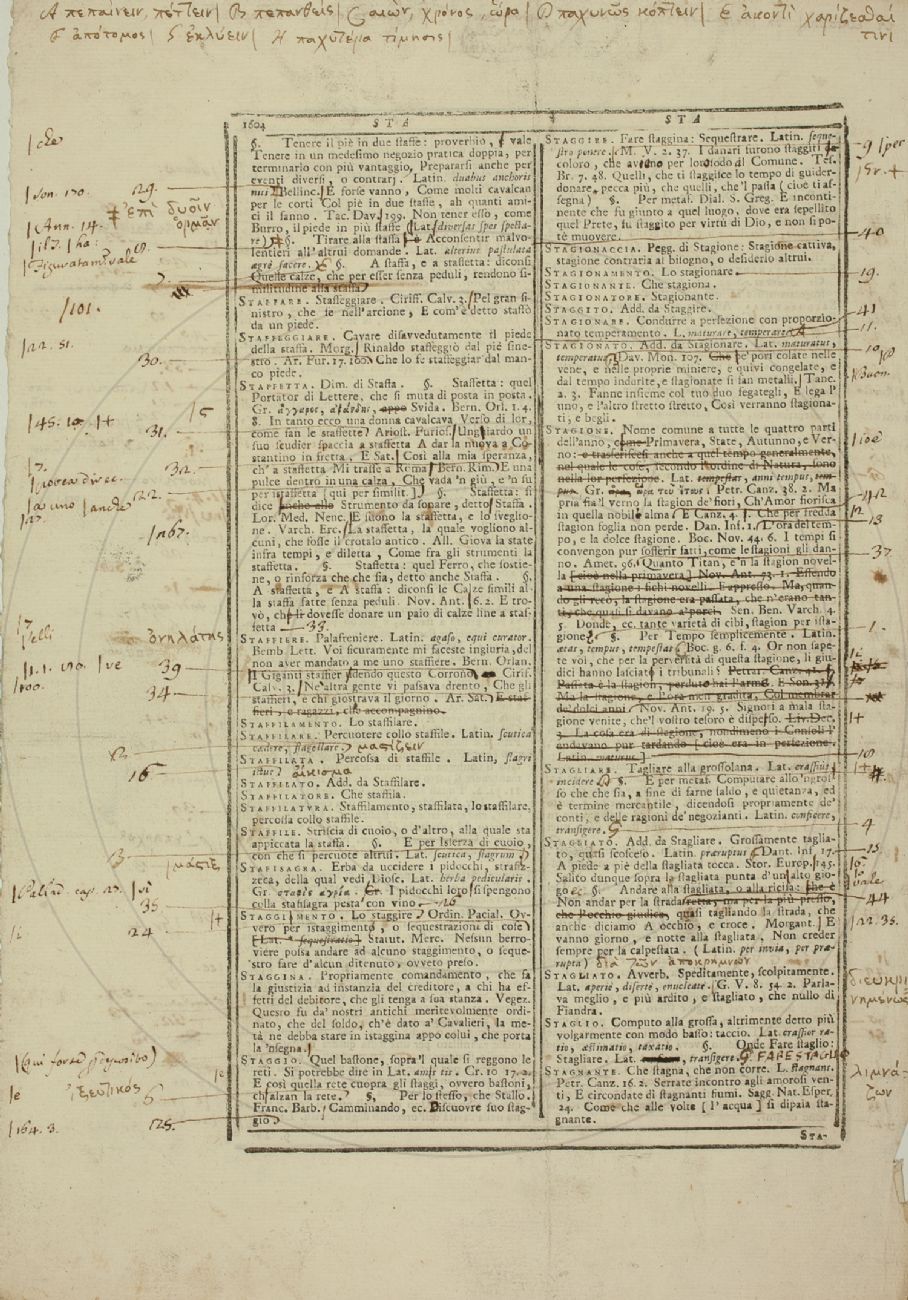 A πεπαίνειν, πέττειν | B πεπανθείς | C αιών, χρόνος, ὥρα | D παχυνῶς κόπτειν | E ἀκοντὶ χαρίζεσθαί
τινι
ἀπότομος | ἐκλύειν | H παχυτέρα τίμησις |
1604 STA STA
§. Tenere il piè in due staffe: proverbio, e vale
Tenere in un medesimo negozio pratica doppia, per
terminarlo con più vantaggio, Prepararsi anche per
eventi diversi, o contrarj. Latin. duabus anchoris
niti Bellinc. E forse vanno, Come molti cavalcan
per le corti Col piè in due staffe, ah quanti ami-
ci il fanno. Tac. Dav. 199. Non tener esso, come
Burro, il piede in più staffe (Lat. diversas spes specta-
re) §. Tirare alla staffa Acconsentir malvo-
lentieri all'altrui domande. Lat. alterius postulata
ægrè facere. §. A staffa, e a staffetta: diconsi
Quelle calze, che per esser senza peduli, rendono si-
militudine alla staffa
STAFFARE. Staffeggiare. Ciriff. Calv. 3. Pel gran si-
nistro, che se nell'arcione, E com'è detto staffò
da un piede.
STAFFEGGIARE. Cavare disavvedutamente il piede
della staffa. Morg. Rinaldo staffeggiò dal piè sine-
stro. Ar. Fur. 17. 100. Che lo fe staffeggiar dal man-
co piede.
STAFFETTA. Dim. di Staffa. §. Staffetta: quel
Portator di Lettere, che si muta di posta in posta.
Gr. ἄγγαρος, ἀστάνδης, appo Svida. Bern. Orl. 1. 4.
8. In tanto ecco una donna cavalcava Verso di lor,
come fan le staffette Ariost. Furios. Ungiardo un
suo scudier spaccia a staffetta A dar la nuova a Co-
stantino in fretta. E Sat. Così alla mia speranza,
ch'a staffetta Mi trasse a Roma Bern. Rim. E una
pulce dentro in una calza, Che vada 'n giù, e 'n su
per istaffetta [qui per similit.] §. Staffetta: si
dice anche allo Strumento da sonare, detto Staffa.
Lor. Med. Nenc. E suono la staffetta, e lo sveglio-
ne. Varch. Erc. La staffetta, la quale vogliono al-
cuni, che fosse il crotalo antico. All. Giova la state
infra tempi, e diletta, Come fra gli strumenti la
staffetta. §. Staffetta: quel Ferro, che sostie-
ne, o rinforza che che sia, detto anche Staffa. §.
A staffetta, e A staffa: diconsi le Calze simili al-
la staffa fatte senza peduli. Nov. Ant. 6. 2. E tro-
vò, che li dovesse donare un paio di calze line a staf-
fetta
STAFFIERE. Palafreniere. Latin. agaso, equi curator.
Bemb. Lett. Voi sicuramente mi faceste ingiuria, del
non aver mandato a me uno staffiere. Bern. Orlan.
I Giganti staffier dendo questo Corrono Ciriff.
Calv. 3. Ne altra gente vi passava drento, Che gli
staffieri, e chi giostrava il giorno. Ar. Sat. E staf-
fieri, e ragazzi, che accompagnino.
STAFFILAMENTO. Lo staffilare.
STAFFILARE. Percuotere collo staffile. Latin. scutica
cædere, flagellare. μαστίζειν
STAFFILATA. Percossa di staffile. Latin. flagri
ictus αἴκισμα
STAFFILATO. Add. da Staffilare.
STAFFILATORE. Che staffila.
STAFFILATVRA. Staffilamento, staffilata, lo staffilare,
percossa collo staffile.
STAFFILE. Striscia di cuoio, o d'altro, alla quale sta
appiccata la staffa. §. E per Isferza di cuoio,
con che si percuote altrui. Lat. scutica, flagrum
STAFISAGRA. Erba da uccidere i pidocchi, strafiz-
zeca, della qual vedi Diosc. Lat. herba pedicularis
Gr. σταφὶς ἀγρία. Cr. I pidocchi loro si spengono
colla stafisagra pesta con vino
STAGGIMENTO. Lo staggire Ordin. Pacial. Ov-
vero per istaggimento, o sequestrazioni di cose
(Lat. sequestratio) Statut. Merc. Nessun berro-
viere possa andare ad alcuno staggimento, o seque-
stro fare d'alcun ditenuto, ovvero preso.
STAGGINA. Propriamente comandamento, che fa
la giustizia ad instanzia del creditore, a chi ha ef-
fetti del debitore, che gli tenga a sua stanza. Vegez.
Questo fu da' nostri antichi meritevolmente ordi-
nato, che del soldo, ch'è dato a' Cavalieri, la me-
tà ne debba stare in istaggina appo colui, che porta
la 'nsegna.
STAGGIO. Quel bastone, sopra 'l quale si reggono le
reti. Si potrebbe dire in Lat. ames tis. Cr. 10 17. 2.
E così quella rete cuopra gli staggi, ovvero bastoni,
ch'alzan la rete. §. Per lo stesso, che Stallo.
Franc. Barb. Camminando, ec. Discuovre suo stag-
gio
STAGGIRE. Fare staggina: Sequestrare. Latin. seque-
stro ponere. M. V. 2. 37. I danari furono staggiti a
coloro, che aveno per lo modo al Comune. Tes.
Br. 7. 48. Quelli, che ti staggisce lo tempo di guider-
donare, pecca più, che quelli, che 'l passa (cioè ti as-
segna) §. Per metaf. Dial. S. Greg. E inconti-
nente che fu giunto a quel luogo, dove era sepellito
quel Prete, fu staggito per virtù di Dio, e non si po-
tè muovere.
STAGIONACCIA. Pegg. di Stagione: Stagione cattiva,
stagione contraria al bisogno, o desiderio altrui.
STAGIONAMENTO. Lo stagionare
STAGIONANTE. Che stagiona.
STAGIONATORE. Stagionante.
STAGGITO. Add. da Staggire.
STAGIONARE. Condurre a perfezione con proporzio-
nato temperamento. L. maturare, temperare
STAGIONATO. Add. da Stagionare. Lat. maturatus,
temperatus. Dav. Mon. 107. Che pe' pori colate nelle
vene, e nelle proprie miniere, e quivi congelate, e
dal tempo indurite, e stagionate si fan metalli. Tanc.
2. 3. Fanne insieme col tuo duo segategli, E lega l'
uno, e l'altro stretto stretto, Così verranno stagiona-
ti, e begli.
STAGIONE. Nome comune a tutte le quattro parti
dell'anno, come Primavera, State, Autunno, e Ver-
no: e trasferiscesi anche a quel tempo generalmente,
nel quale le cose, secondo l'ordine di Natura, sono
nella lor perfezione. Lat. tempestas, anni tempus, tem-
pus. Gr. ὥρα, ὥρα τοῦ ἔτους. Petr. Canz. 38. 2. Ma
pria fia 'l verno la stagion de' fiori, Ch'Amor fiorisca
in quella nobil' alma E Canz. 4. Che per fredda
stagion foglia non perde. Dan. Inf. 1. L'ora del tem-
po, e la dolce stagione. Boc. Nov. 44. 6. I tempi si
convengon pur sofferir fatti, come le stagioni gli dan-
no. Amet. 96. Quanto Titan, e 'n la stagion novel-
la [cioè nella primavera] Nov. Ant. 73. 1. Essendo
a una stagione i fichi novelli. E appresso. Ma, quan-
do gli recò, la stagione era passata, che n'erano tan-
ti, che quasi si davano a' porci. Sen. Ben. Varch. 4.
5. Donde, ec. tante varietà di cibi, stagion per ista-
gione §. Per Tempo semplicemente. Latin.
ætas, tempus, tempestas Boc. g. 6. f. 4. Or non sape-
te voi, che per la perversità di questa stagione, li giu-
dici hanno lasciato i tribunali Petrar. Canz. 41.
Passata è la stagion, perduto hai l'arme. E Son. 37.
Ma la stagione, e l'ora men gradita, Col membrar
de' dolci anni Nov. Ant. 19. 5. Signori a mala sta-
gione venite, che 'l vostro tesoro è dispeso. Liv. Dec.
3. La cosa era di stagione, nondimeno i Consoli l'
andavano pur tardando [cioè era in perfezione.
Latin. maturus]
STAGLIARE. Tagliare alla grossolana. Lat. crassius
incidere §. E per metaf. Computare allo 'ngros-
so che che sia, a fine di farne saldo, e quietanza, ed
è termine mercantile, dicendosi propriamente de'
conti, e delle ragioni de' negozianti. Latin. conficere,
transigere.
STAGLIATO. Add. da Stagliare. Grossamente taglia-
to, quasi scosceso. Latin. præruptus Dant. Inf. 17.
A piede a piè della stagliata rocca. Stor. Europ. 145.
Salito dunque sopra la stagliata punta d'un alto gio-
go ec. §. Andare alla stagliata, o alla ricisa: che è
Non andar per la strada retta, ma per la più presso,
che l'occhio giudica, quasi tagliando la strada, che
anche diciamo A occhio, e croce. Morgant. E
vanno giorno, e notte alla stagliata, Non creder
sempre per la calpestata. (Latin. per invia, per præ-
rupta) διὰ τῶν ἀποκρήμνων
STAGLIATO. Avverb. Speditamente, scolpitamente.
Lat. apertè, disertè, enucleatè. G. V. 8. 54. 2. Parla-
va meglio, e più ardito, e stagliato, che nullo di
Fiandra.
STAGLIO. Computo alla grossa, altrimente detto più
volgarmente con modo basso: taccio. Lat. crassior ra-
tio, æstimatio, taxatio. §. Onde Fare staglio:
Stagliare. Lat. transigere. FARE STAGLIO
STAGNANTE. Che stagna, che non corre. L. stagnans.
Petr. Canz. 16. 2. Serrate incontro agli amorosi ven-
ti, E circondate di stagnanti fiumi. Sagg. Nat. Esper.
24. Come che alle volte [l'acqua] si dipaia sta-
gnante.
STA-
che
Son. 170. 29.
ἐπὶ δυοῖν
ὁρμᾶν
Ann. 14.
Figuratam. vale
101.
22. 51.
30.
31.
32.
22.
267.
ὀνηλάτης
39
34
16
35
24
125.
164. 3.
40
19.
41
11.
Buon.
cioè
13
37
1.
4
15
vale
44
22. 35.
διευκρι
νημένως
λιμνά-
ζων